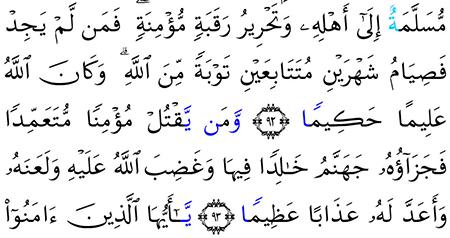 مُّسَلَّمَةٌ إِلَىٰٓ أَهْلِهِۦ وَتَحْرِيرُ رَقَبَةٍ مُّؤْمِنَةٍ ۖ فَمَن لَّمْ يَجِدْ
فَصِيَامُ شَهْرَيْنِ مُتَتَابِعَيْنِ تَوْبَةً مِّنَ ٱللَّهِ ۗ وَكَانَ ٱللَّهُ
عَلِيمًا حَكِيمًا ﴿٩٢﴾ وَمَن يَقْتُلْ مُؤْمِنًا مُّتَعَمِّدًا
فَجَزَآؤُهُۥ جَهَنَّمُ خَٰلِدًا فِيهَا وَغَضِبَ ٱللَّهُ عَلَيْهِ وَلَعَنَهُۥ
وَأَعَدَّ لَهُۥ عَذَابًا عَظِيمًا ﴿٩٣﴾ يَٰٓأَيُّهَا ٱلَّذِينَ ءَامَنُوٓا۟